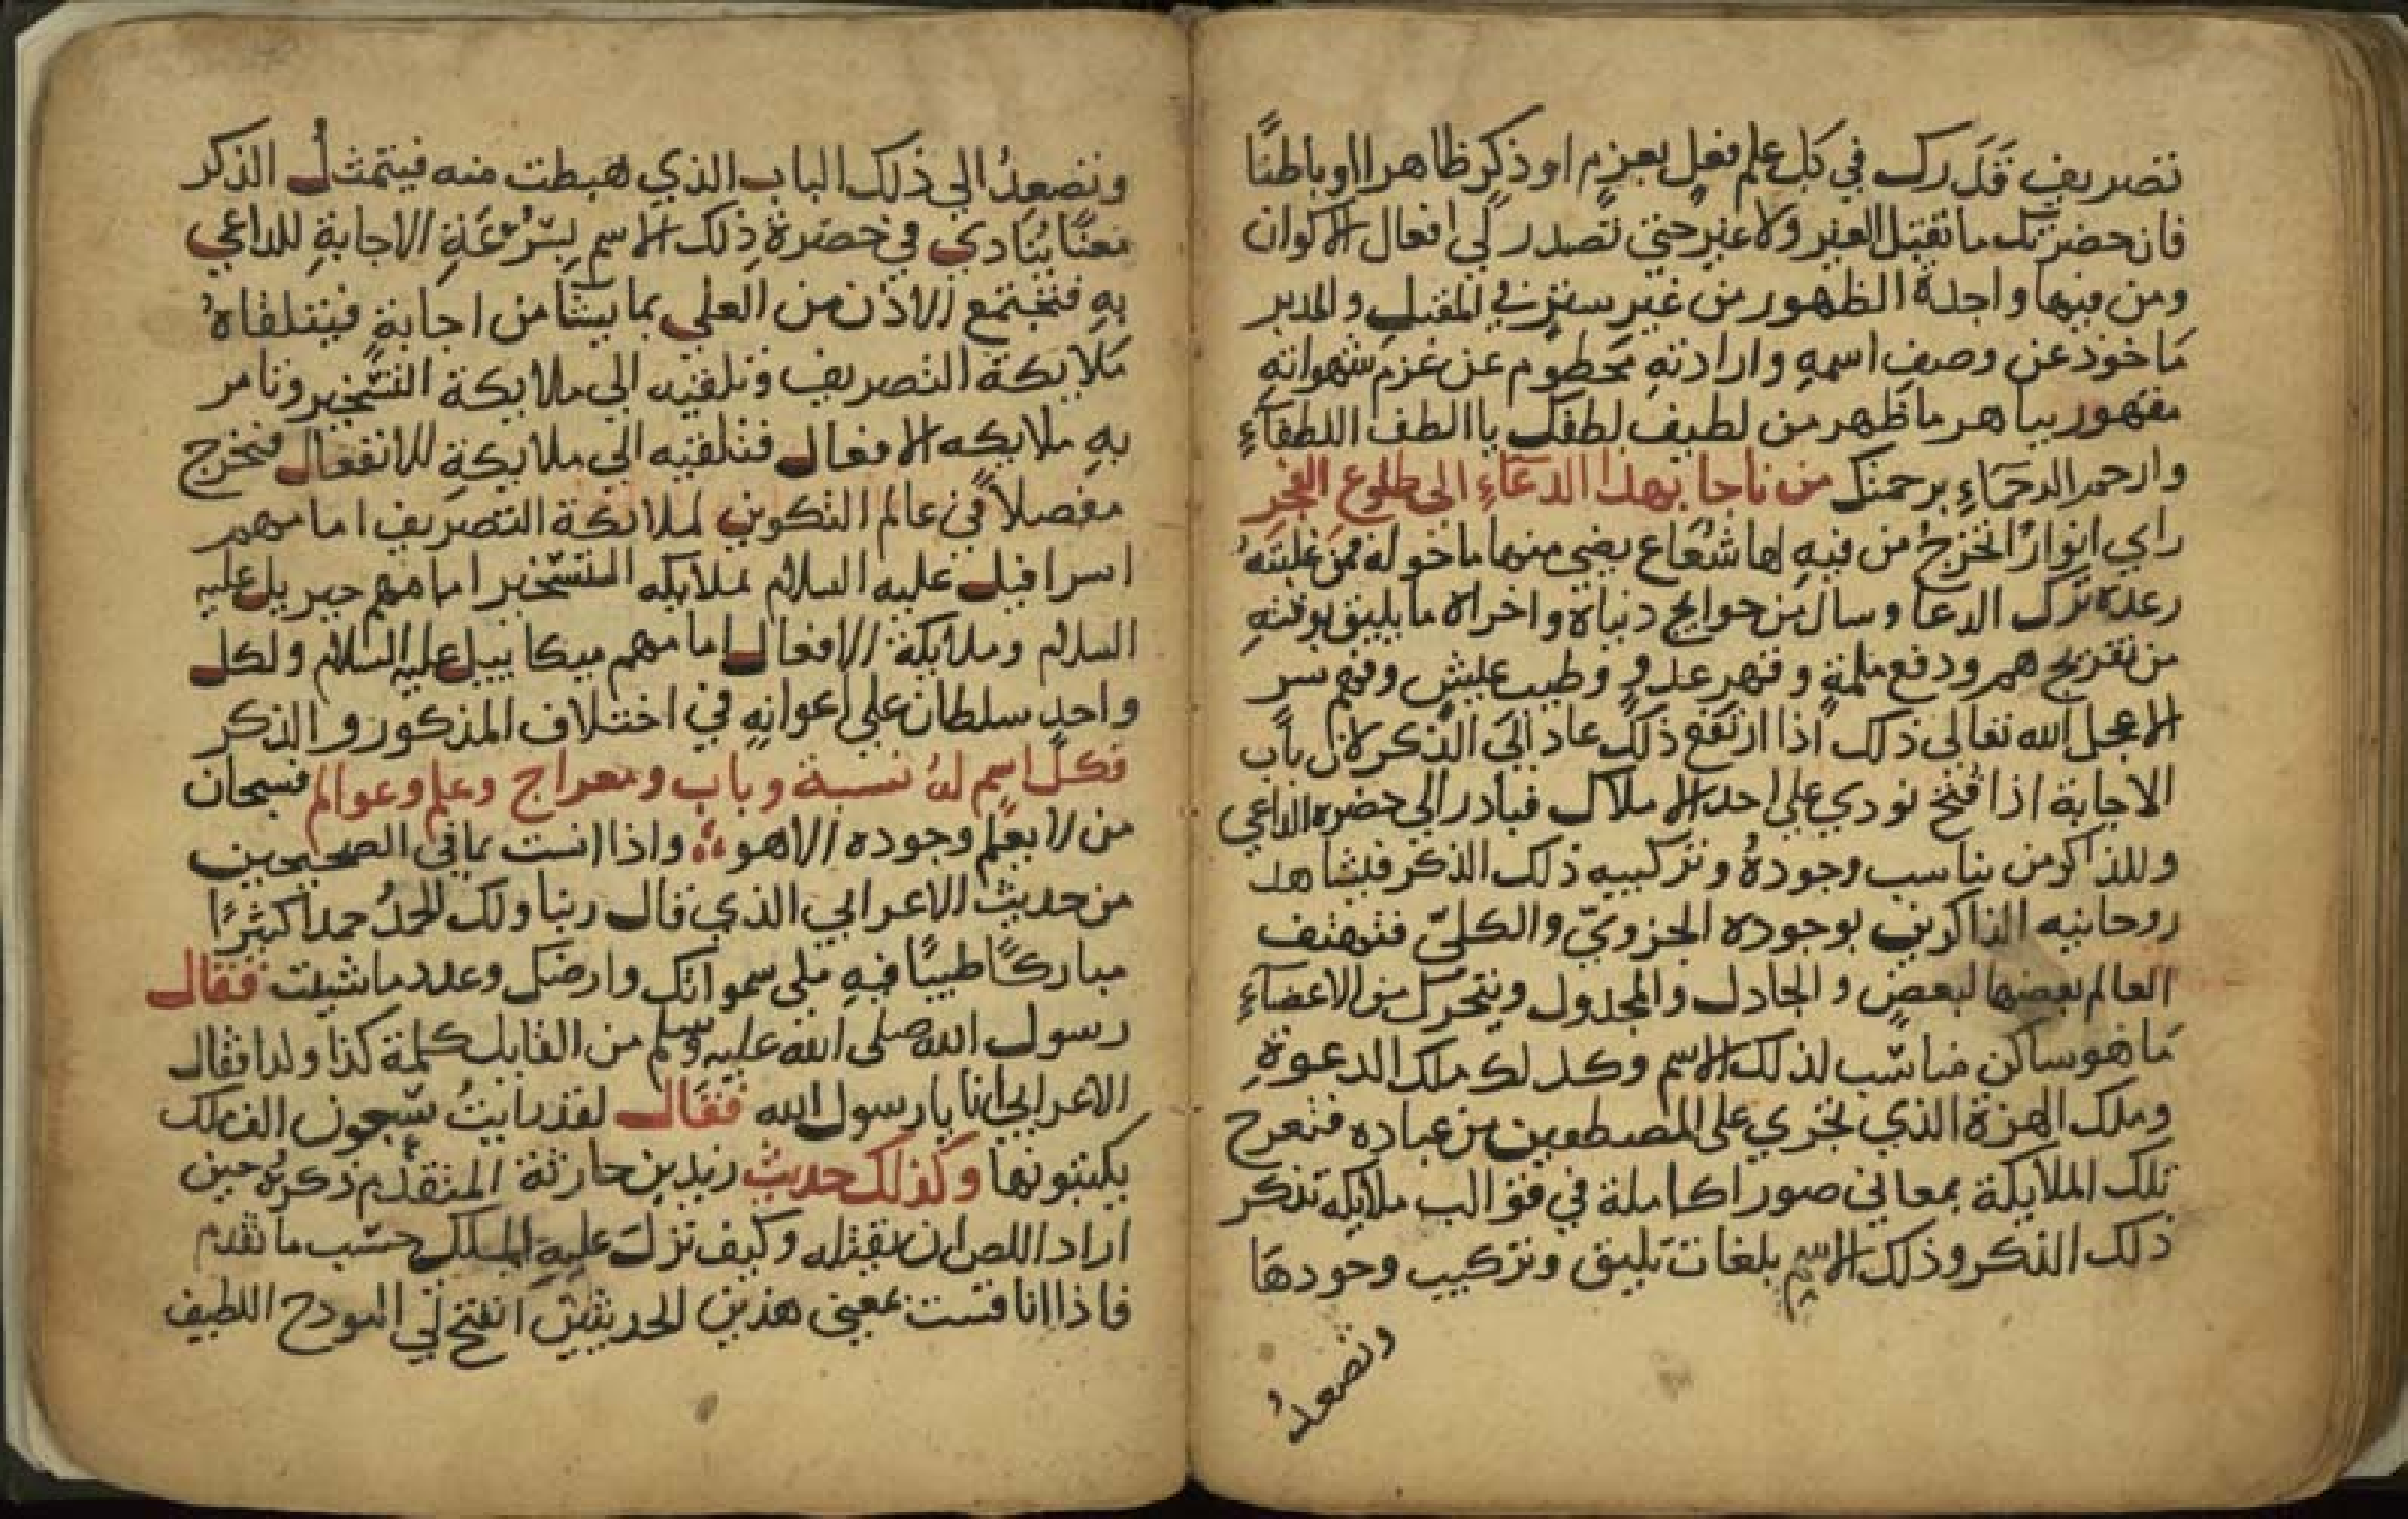 تصريف قدرك في كل علم فعل بعزم او ذكر ظاهرا او باطنا
فان حضرتك ما تقبل الغير ولا غير حتى تصدر لي افعال الاكوان
ومن فيها واجدة الظهور من غير ستر في المقبل والمدبر
ماخوذ عن وصف اسمه وارادته محطوم عن عزم شهواته
مقهور بباهر ما ظهر من لطيف لطفك يا الطف اللطفاء
وارحم الرحماء برحمتك من ناجا بهذا الدعاء الى طلوع الفجر
راي انوارا تخرج من فيه لها شعاع يضي منها ما حوله فمن غلبته
رعدة ترك الدعا وسال من حوايج دنياه واخراه ما يليق بوقته
من تفريج هم ودفع ملمة وقهر عدو وطيب عيش وفهم سر
الا عجل الله تعالى ذلك اذا ارتفع ذلك عاد الى الذكر لان باب
الاجابة اذا فتح نودي على احد الاملاك فبادر الى حضرة الداعي
وللذاكر من يناسب وجوده وتركيبه ذلك الذكر فيشاهد
روحانيه الذاكرين بوجوده الجزويّ والكليّ فتهتف
العالم بعضها لبعض والجادل والمجدول ويتحرك من الاعضاء
ما هو ساكن مناسب لذلك الاسم وكذلك ملك الدعوة
وملك الهزة الذي تجري على المصطفين من عباده فتعرج
تلك الملايكة بمعاني صورا كاملة في قوالب ملايكه تذكر
ذلك الذكر وذلك الاسم بلغات تليق وتركيب وجودها
وتصعد
وتصعد الي ذلك الباب الذي هبطت منه فيتمثل الذكر
معنا ينادي في حضرة ذلك الاسم بسرعة الاجابة للداعي
به فتجتمع الاذن من العلي بما يشا من اجابة فيتلقاه
ملايكة التصريف وتلقيه الي ملايكة التسخير وتامر
به ملايكه الافعال فتلقيه الي ملايكة للانفعال فتخرج
مفصلا في عالم التكوين لملائكة التصريف امامهم
اسرافيل عليه السلام لملايكه التسخير امامهم جبريل عليه
السلام وملايكة الافعال امامهم ميكاييل عليه السلام ولكل
واحد سلطان على اعوانه في اختلاف المذكور والذكر
فكل اسم له نسبة وباب ومعراج وعلم وعوالم فسبحان
من لا يعلم وجوده الا هو واذا انست بما في الصحيحين
من حديث الاعرابي الذي قال ربنا ولك الحمد حمدا كثيرا
مباركا طيبا فيه ملى سمواتك وارضك وعدد ما شيت فقال
رسول الله صلى الله عليه وسلم من القايل كلمة كذا ولذا فقال
الاعرابي انا يا رسول الله فقال لقد رايت سبعون الف ملك
يكتبونها وكذلك حديث زيد بن حارثة المتقدم ذكره حين
اراد اللص ان يقتله وكيف نزل عليه الملك حسب ما تقدم
فاذا انا فتست بمعنى هذين الحديثين انفتح لي اللطيف